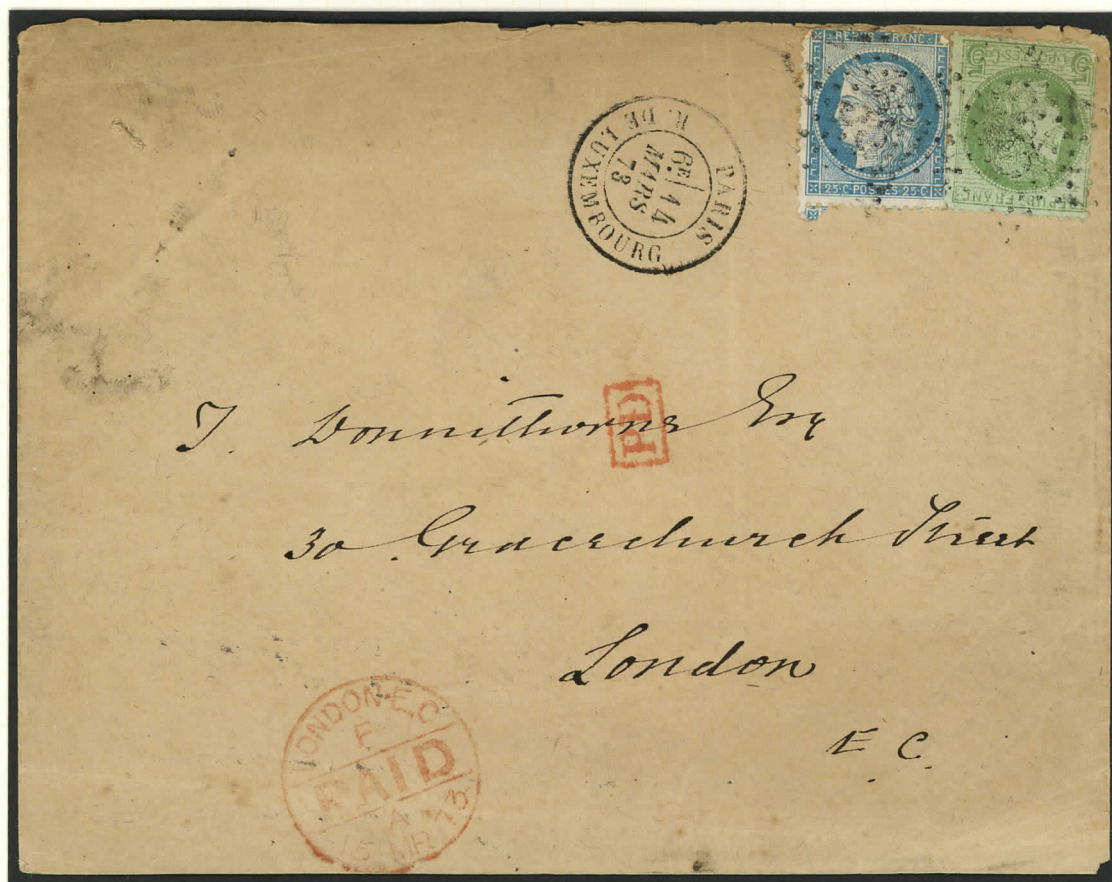 REPUB FRANC
25·C POSTES 25·C
5
5
FRANC
PARIS
R. DE LUXEMBOURG
6E 14
MARS
73
PD
J. Donnithorne Esq
30 Gracechurch Street
London
E. C.
LONDON·E.C
F
PAID
A
15 MR 73